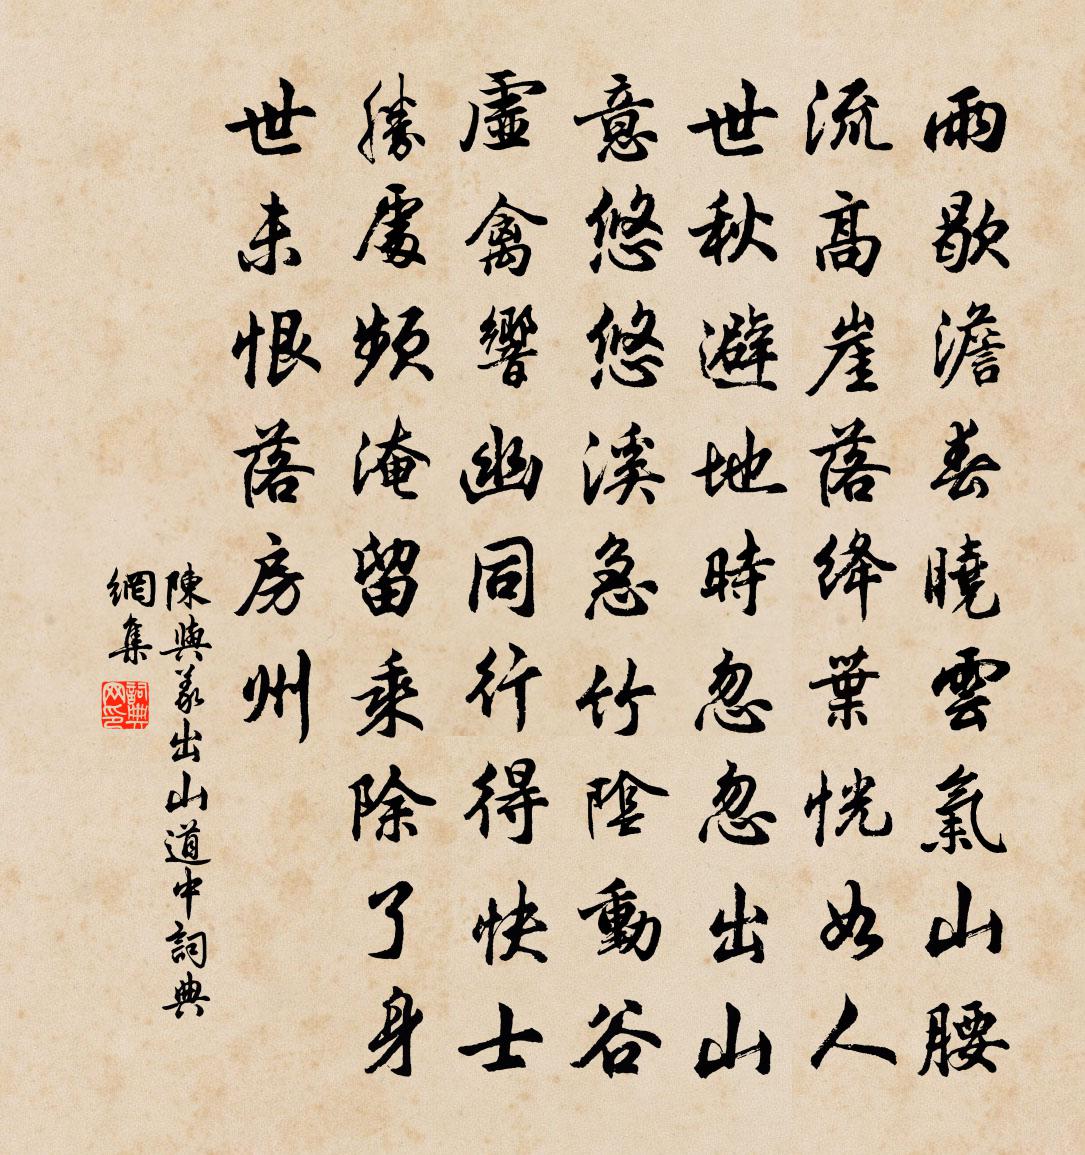 雨歇澹春曉雲氣山腰
流高崖落絳葉恍如人
世秋避地時忽忽出山
意悠悠溪急竹陰動谷
虛禽響幽同行得快士
勝處頻淹留乘除了身
世未恨落房州
陳與義出山道中詞典
網集
詞典網印